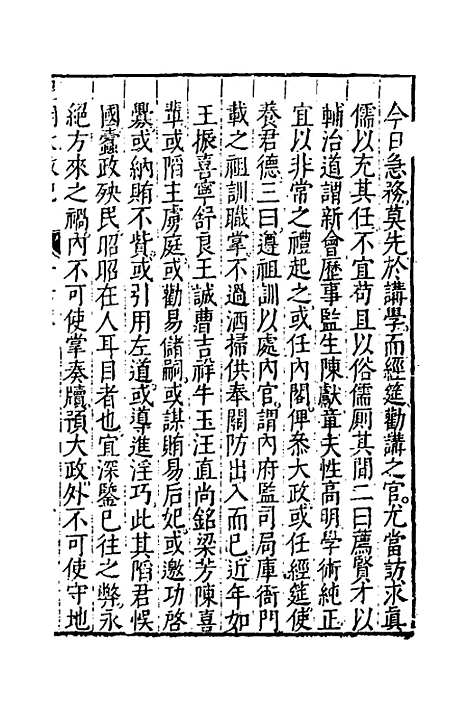 今日急務莫先於講學而經筵勸講之官尤當訪求眞
儒以充其任不宜苟且以俗儒厠其間二曰薦賢才以
輔治道謂新會歷事監生陳獻章天性高明學術純正
宜以非常之禮起之或任內閣俾叅大政或任經筵使
養君德三曰遵祖訓以處內官謂內府監司局庫衙門
載之祖訓職掌不過洒掃供奉關防出入而已近年如
王振喜寧舒良王誠曹吉祥牛玉汪直尚銘梁芳陳喜
輩或陷主虜庭或勸易儲嗣或謀賄易后妃或邀功啓
釁或納賄不貲或引用左道或導進淫巧此其陷君悞
國蠹政殃民昭昭在人耳目者也宜深鑒已往之弊永
絕方來之禍內不可使掌奏牘預大政外不可使守地